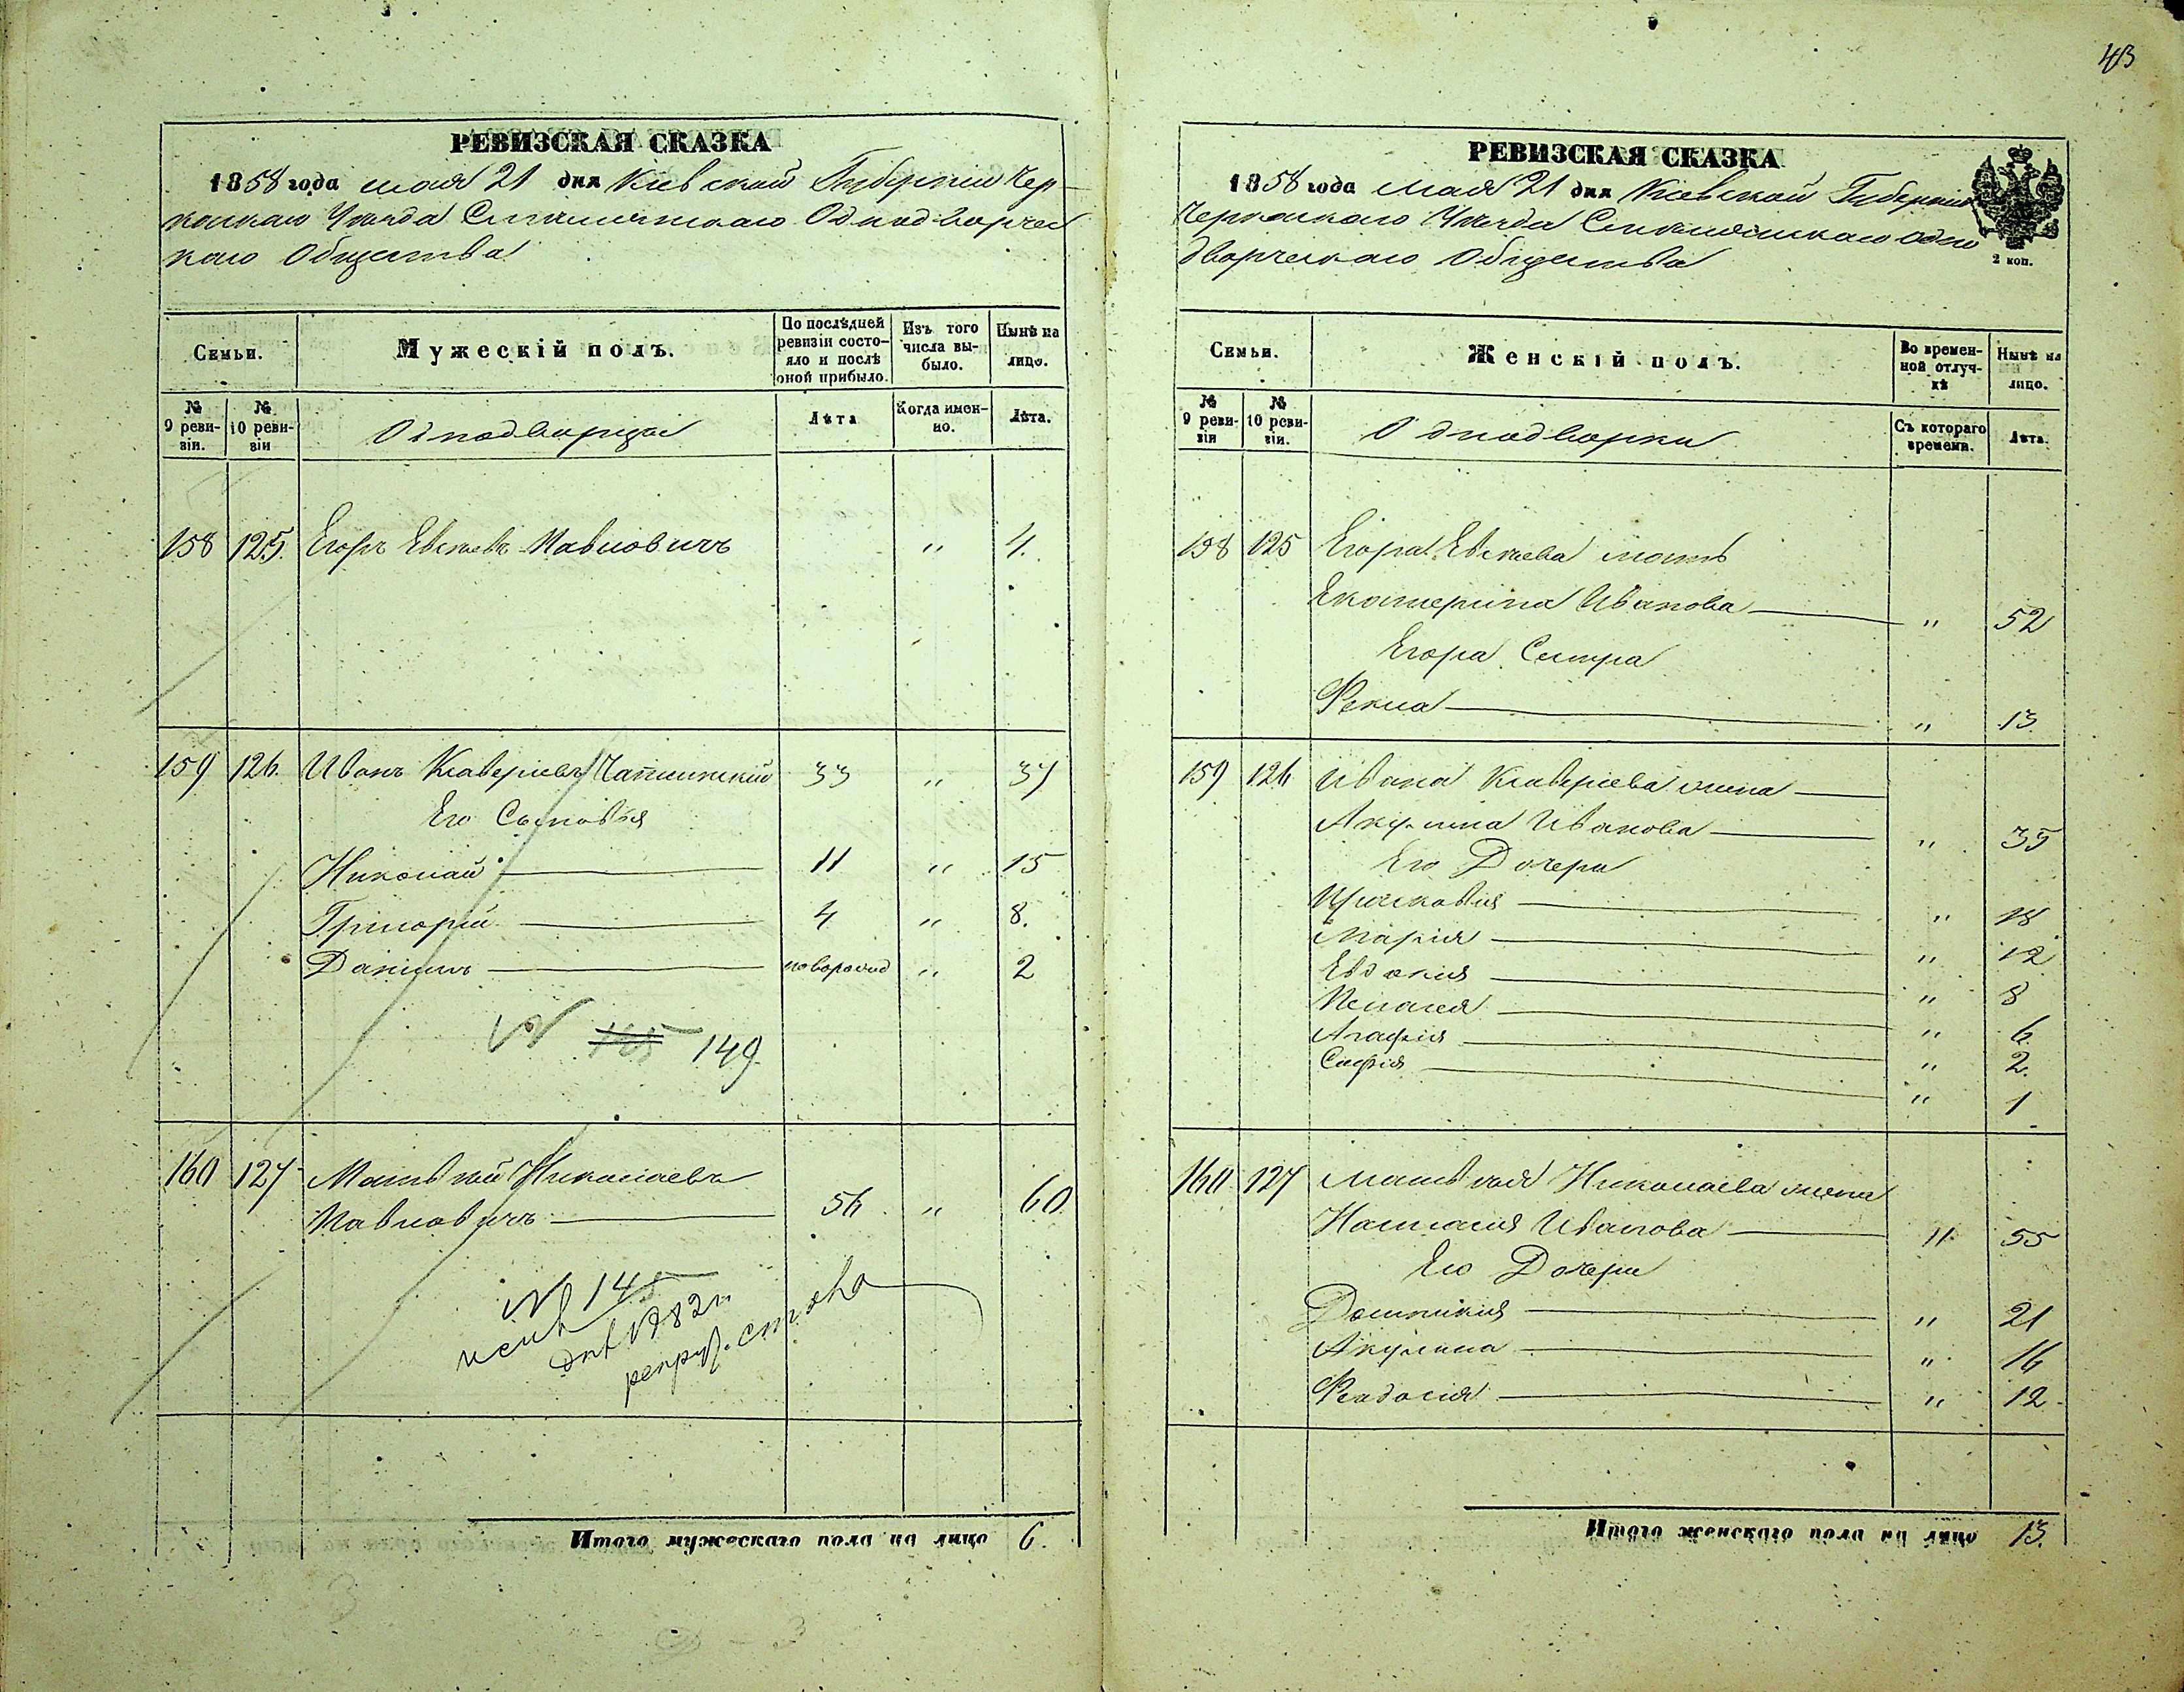 43
РЕВИЗСКАЯ СКАЗКА
1858 года мая 21 дня Кіевской Губерніи Чер-
каскаго Уѣзда Смѣлянскаго Однодворчес
каго Общества
Семьи.
Мужескій полъ.
По послѣдней ревизіи состо-яло и послѣ оной прибыло.
Изъ того числа вы-было.
Нынѣ на лицо.
№ 9 реви-зіи.
№ 10 реви-зіи
Однодворцы
Лѣта
Когда имен-но.
Лѣта.
158 125. Егоръ Евсѣевъ Павловичъ " 4.
159 126. Иванъ Ксаверіевъ 33 " 37
Его Сыновья
Николай 11 " 15
Григорій 4 " 8.
Даніилъ новорожд " 2
№ 165 149.
160 127 Матвѣй Николаевъ
Павловичъ 56 " 60.
№ 145
рекрут.
Итого мужескаго пола на лицо 6.
РЕВИЗСКАЯ СКАЗКА
1858 года мая 21 дня Кіевской Губерніи
Черкаскаго Уѣзда Смѣлянскаго Одно
дворческаго Общества
2 коп.
Семьи.
Женскій полъ.
Во времен-ной отлуч-кѣ
Нынѣ на лицо.
№ 9 реви-зіи
№ 10 реви-зіи.
Однодворки
Съ котораго времени.
Лѣта.
158 125 Егора Евсѣева мать
Екатерина Иванова " 52
Егора Сестра
Фекла " 13
159 126 Ивана Ксаверіева жена
Акулина Иванова " 35
Его Дочери
Прасковія " 18
Марія " 12
Евдокія " 8
Пелагея " 6
Агафія " 2.
Софія " 1
160 127 Матвѣя Николаева жена
Наталія Иванова " 55
Его Дочери
Домникія " 21
Акулина " 16
Феодосія " 12
Итого женскаго пола на лицо 13.